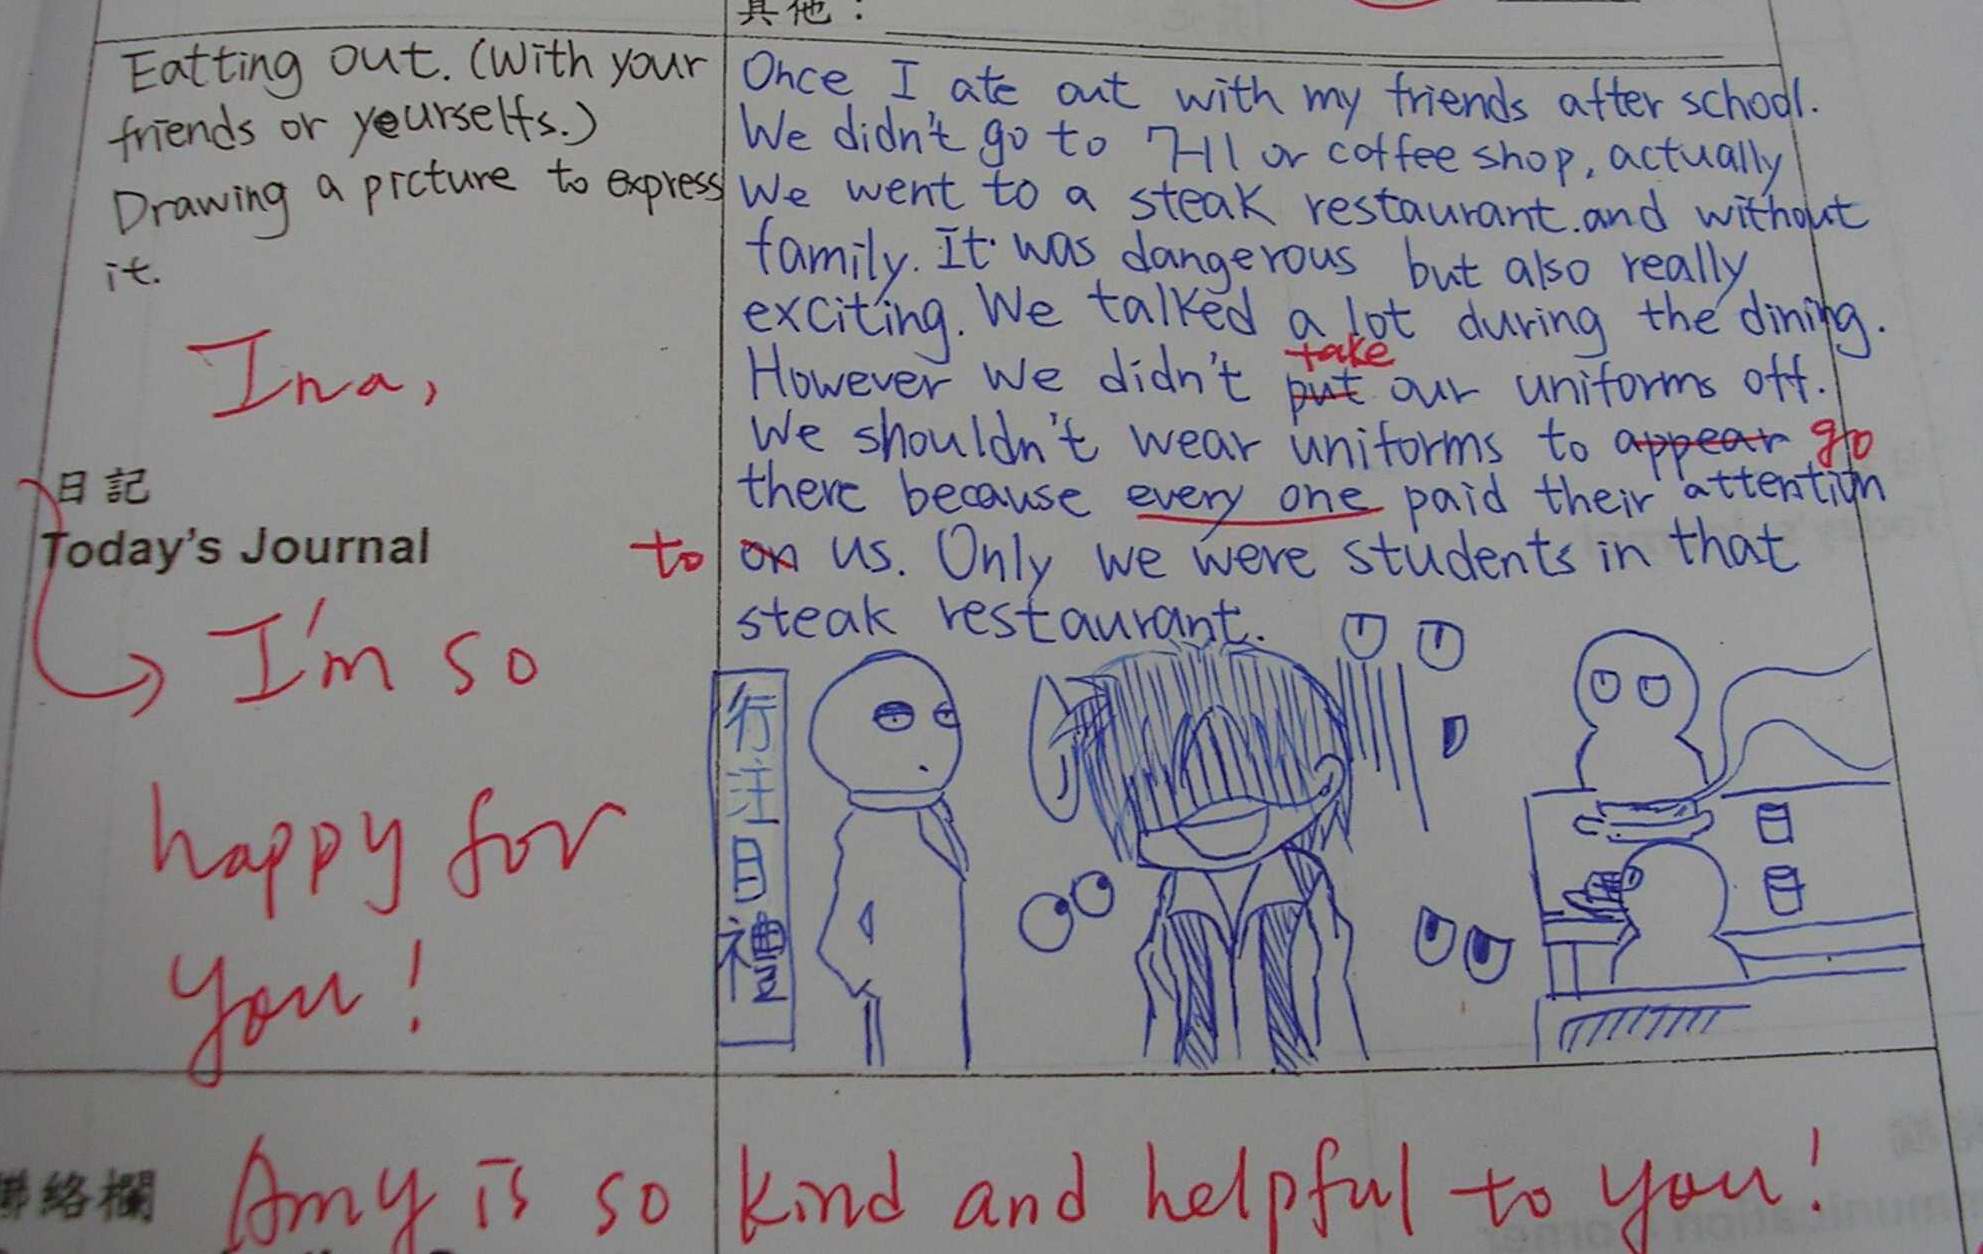 其他：
Eatting out. (With your
friends or yourselfs.)
Drawing a picture to express
it.
Ina,
日記
Today's Journal
I'm so
happy for
you!
Once I ate out with my friends after school.
We didn't go to 7-11 or coffee shop, actually
we went to a steak restaurant. and without
family. It was dangerous but also really
exciting. We talked a lot during the dining.
take
However we didn't put our uniforms off.
We shouldn't wear uniforms to appear go
there because every one paid their attention
to on us. Only we were students in that
steak restaurant.
行注目禮
聯絡欄
Amy is so kind and helpful to you!